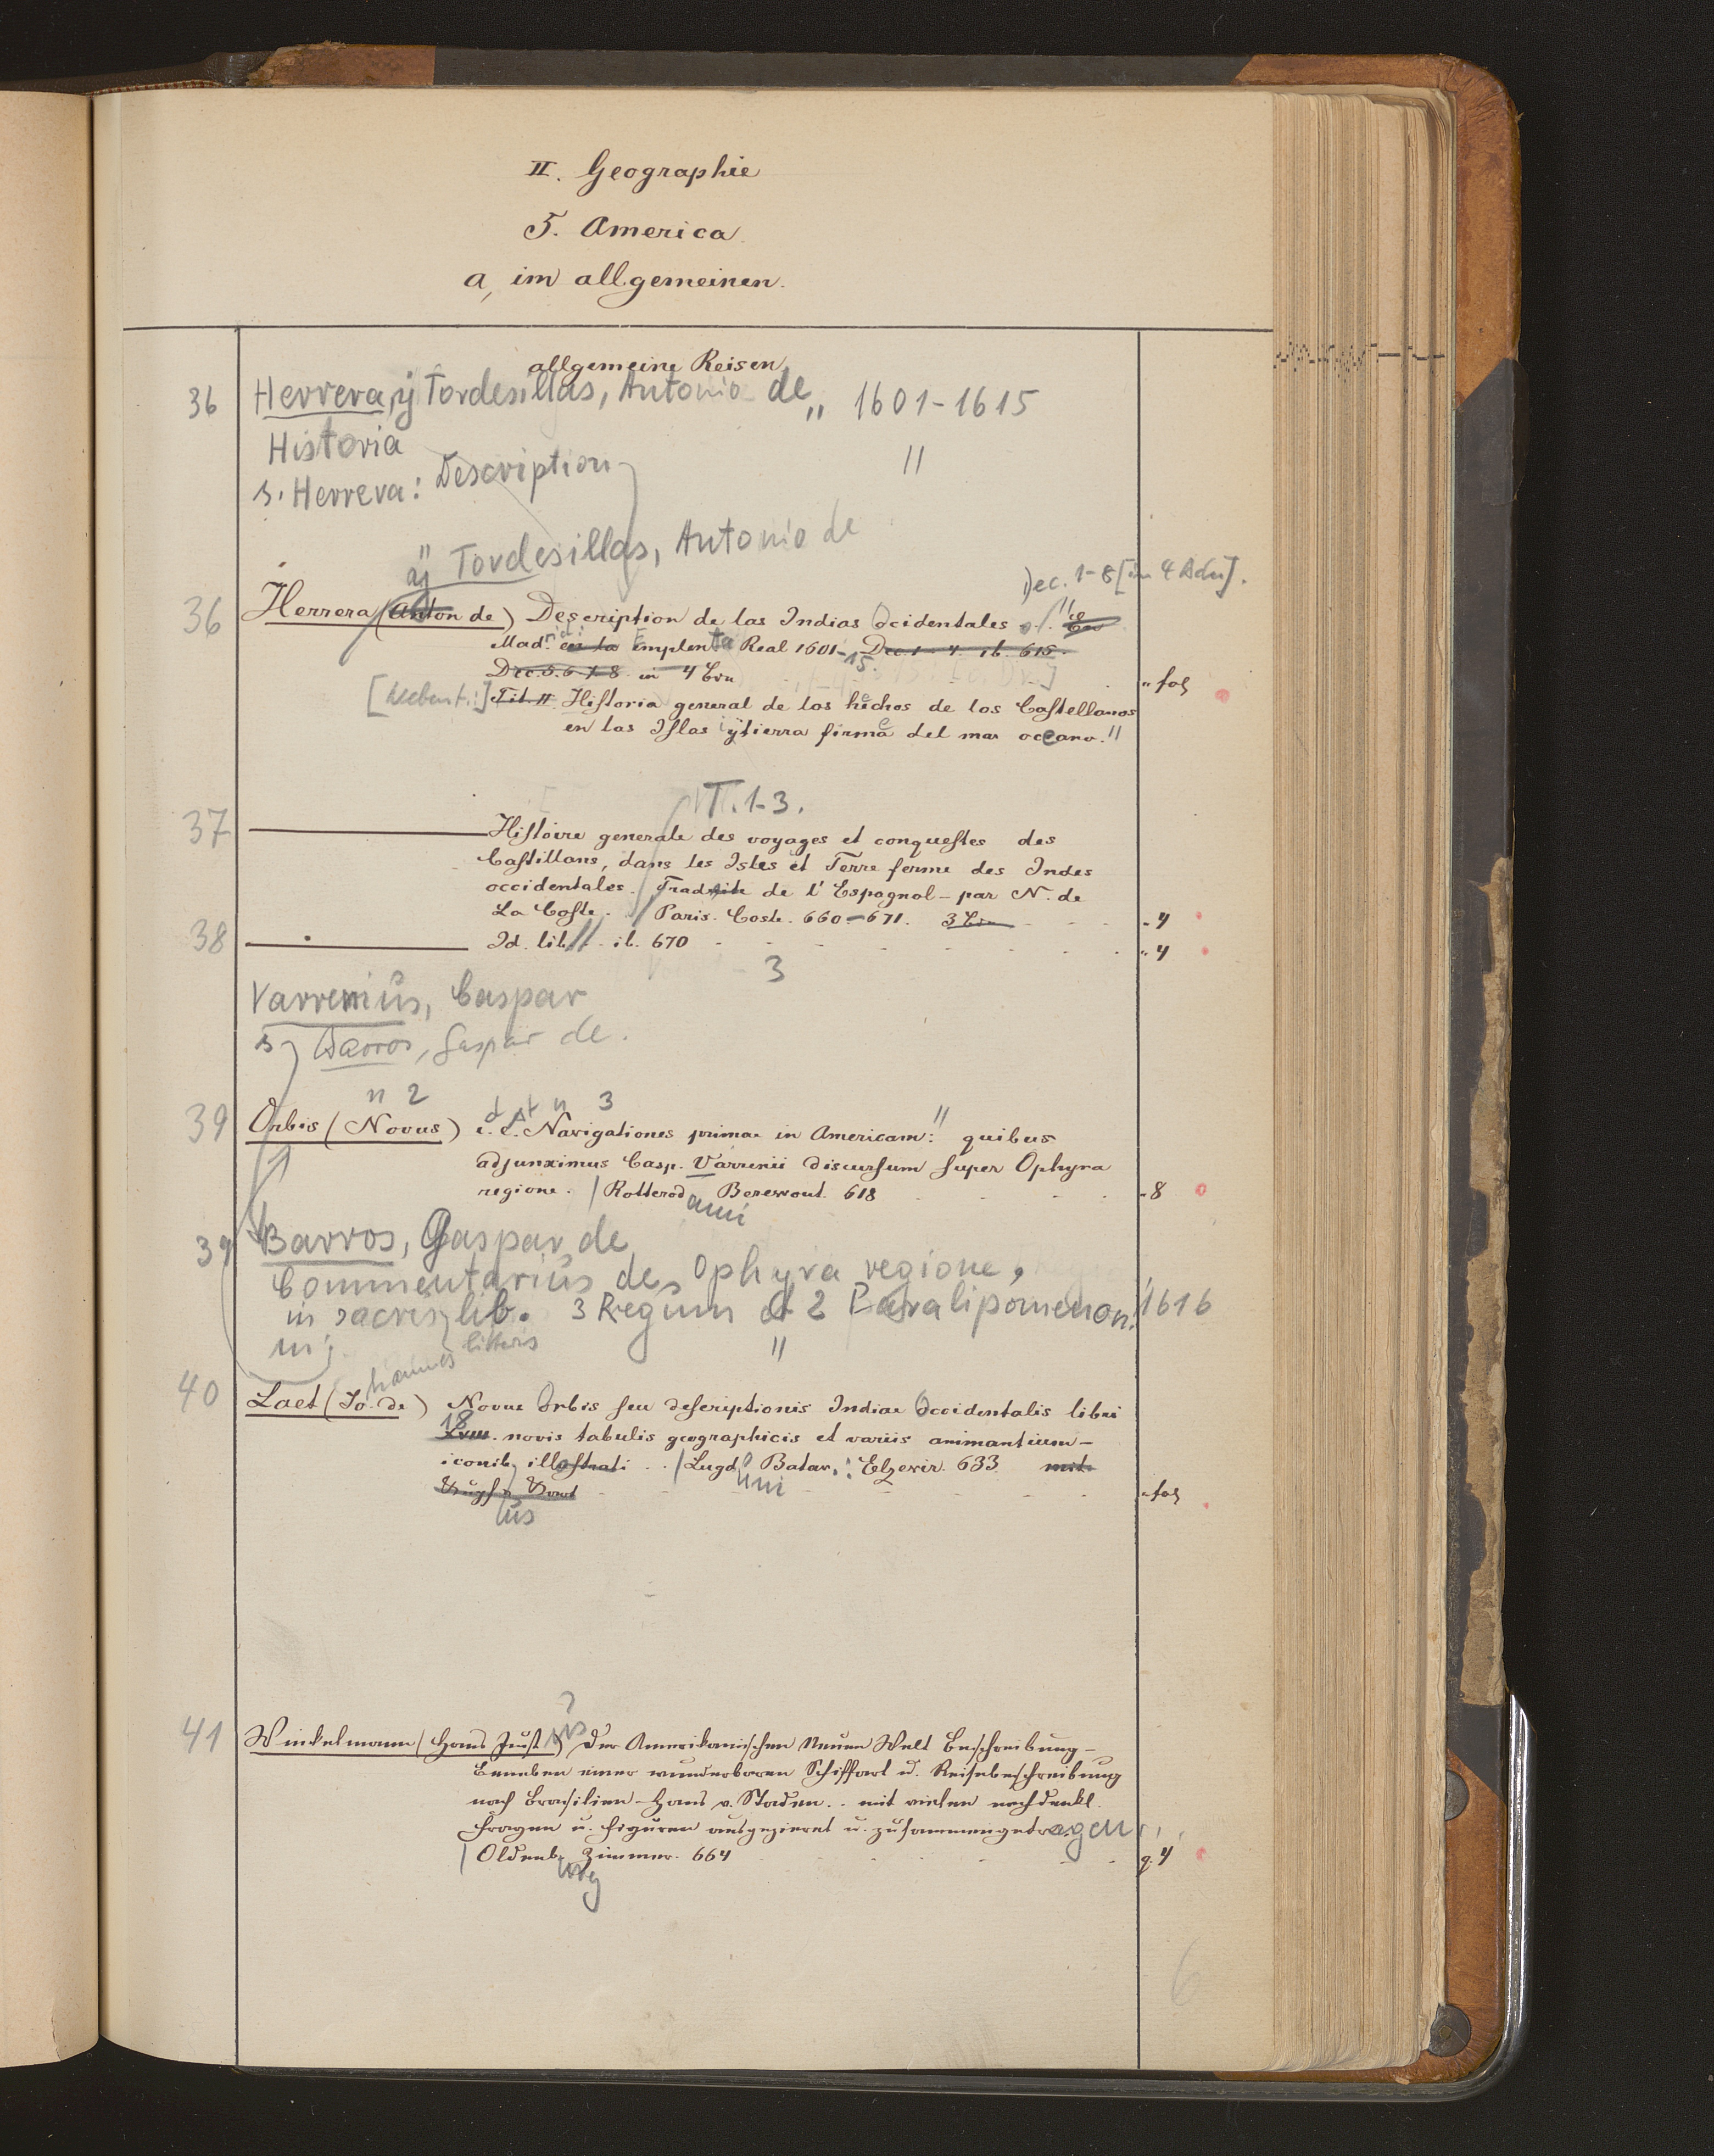 II. Geographie
5. America
a, im allgemeinen.
allgemeine Reisen
36 Herrera, ÿ Tordesillas, Antonio de „ 1601-1615
Historia
s. Herrera: Description "
ÿ Tordesillas, Antonio de
Dec. 1-8 [in 4 Bdn].
36 Herrera (Anton de) Description de las Indias Ocidentales
Mad. en la Emplenta Real 1601-15. Dec. 1-4. ib. 615.
Dec. 5. 6. 7. 8. in 4 Bdn „ fol
[Nebent.:] Tit. II. Historia general de los hechos de los Castellanos
en las Islas ÿ tierra firme del mar oceano. "
T. 1-3.
37 Histoire generale des voyages et conquestes des
Castillans, dans les Isles et Terre ferme des Indes
occidentales. Traduite de l'Espagnol - par N. de
La Coste. Paris. Coste. 660-671. 3 Bde - 4
38 Id. lib. ib. 670 „ 4
3
Varrerius, Caspar
s. Barros, Gaspar de.
n 2 3
39 Orbis (Novus) i. e. Navigationes primae in Americam: quibus
adjunximus Casp. Varrerii discursum super Ophyra
regione. | Rotterod Berewout. 618 - 8
ami
39 Barros, Gaspar de
Commentarius de Ophyra regione,
in sacris lib. 3 Regum et 2 Paralipomenon. 1616
litteris "
hannes
40 Laet (Jo. de) Novus Orbis seu descriptionis Indiae Occidentalis libri
18
XVIII. novis tabulis geographicis et variis animantium -
iconib. illustrati .. | Lugd. Batav. : Elzevir. 633. mit
uni
Kupf u. Kart „ fol
us
41 Winkelmann (Hans Just) Der Amerikanischen Neuen Welt Beschreibung -
us
Beneben einer wunderbaren Schiffart u. Reisebeschreibung
nach Brasilien - Hans v. Staden .. mit vielen nachdenkl.
Fragen u. Figuren ausgezieret u. zusammengetragen
| Oldenb. Zimmer. 664 q. 4
urg
6